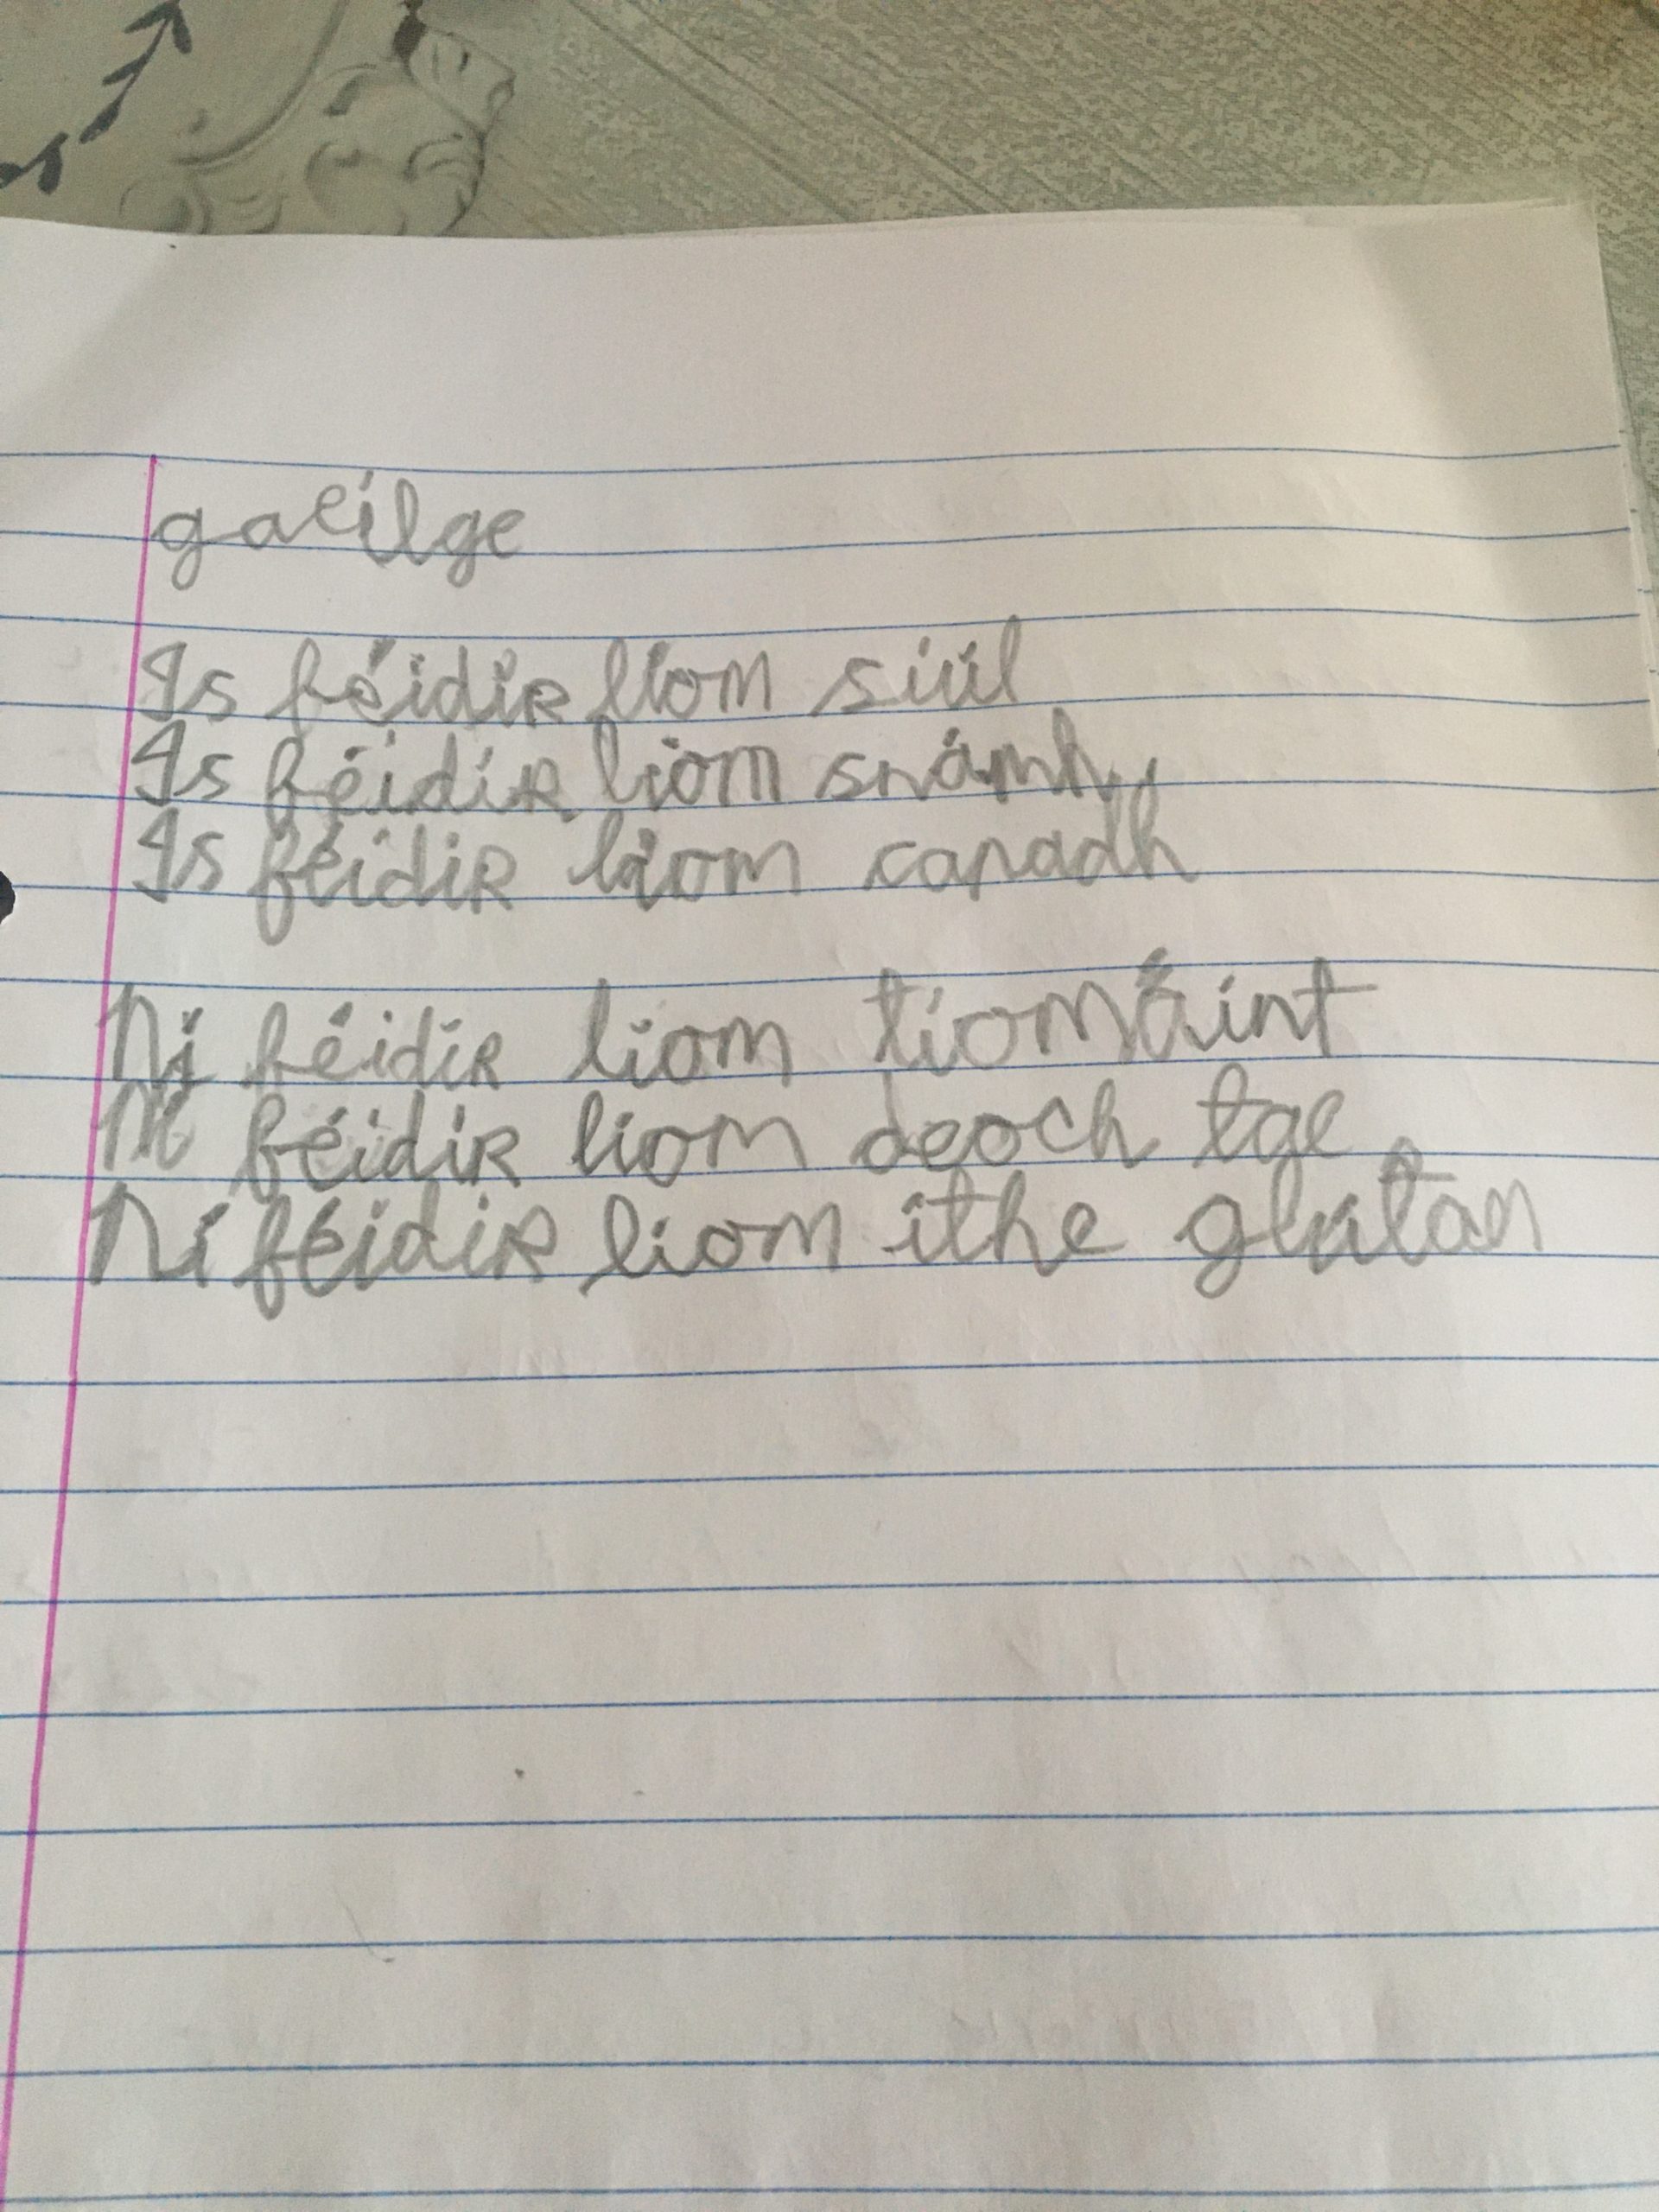 gaeilge
Is féidir liom siúl
Is féidir liom snámh
Is féidir liom canadh
Ní féidir liom tiomáint
Ní féidir liom deoch tae
Ní féidir liom ithe glútan